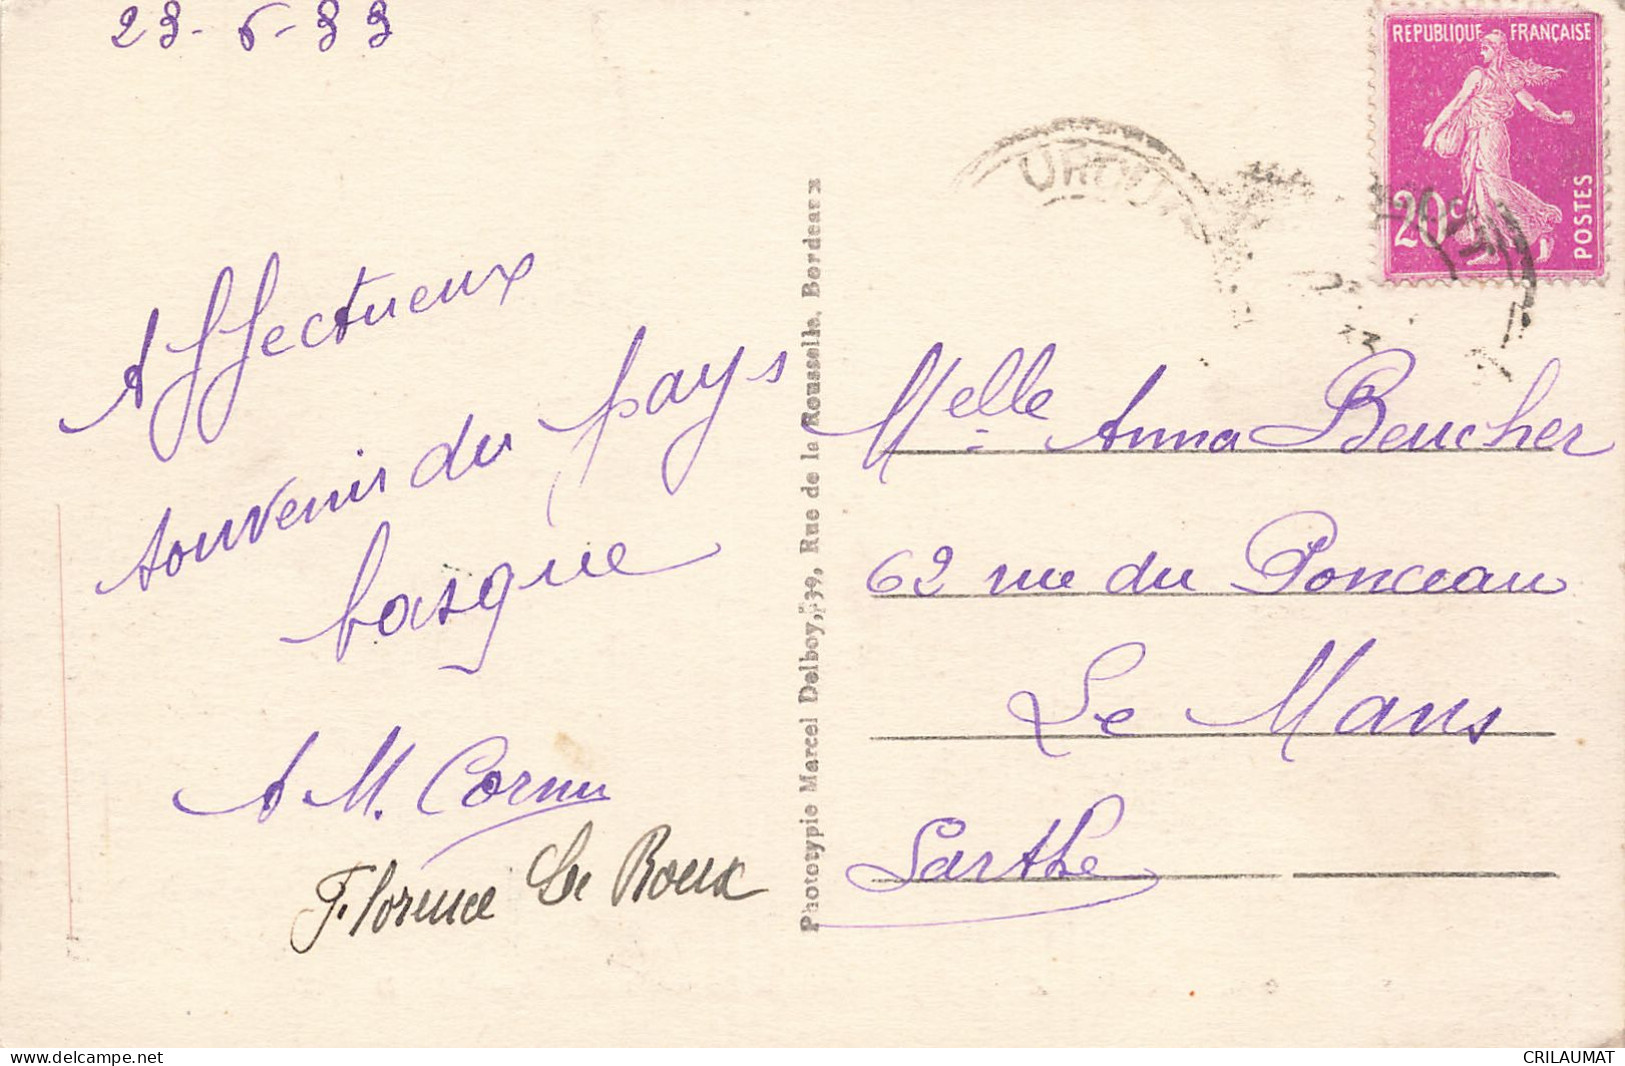 23-6-33
REPUBLIQUE FRANÇAISE
20c
POSTES
Affectueux
souvenir du pays
basque
A M. Cornu
Florence Le Roux
Phototypie Marcel Delboy, 39, Rue de la Rousselle, Bordeaux
Melle Anna Beucher
62 rue du Ponceau
Le Mans
Sarthe
www.delcampe.net
CRILAUMAT